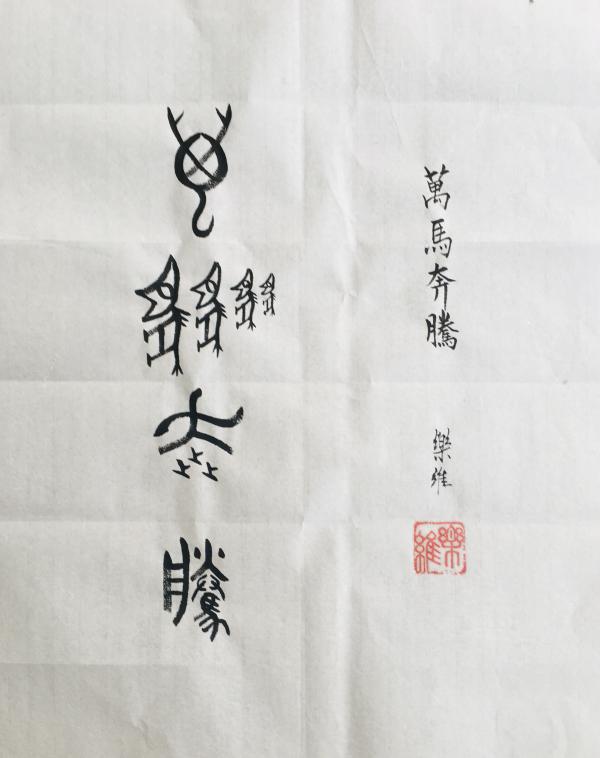 萬馬奔騰
樂維
樂維
萬馬奔騰